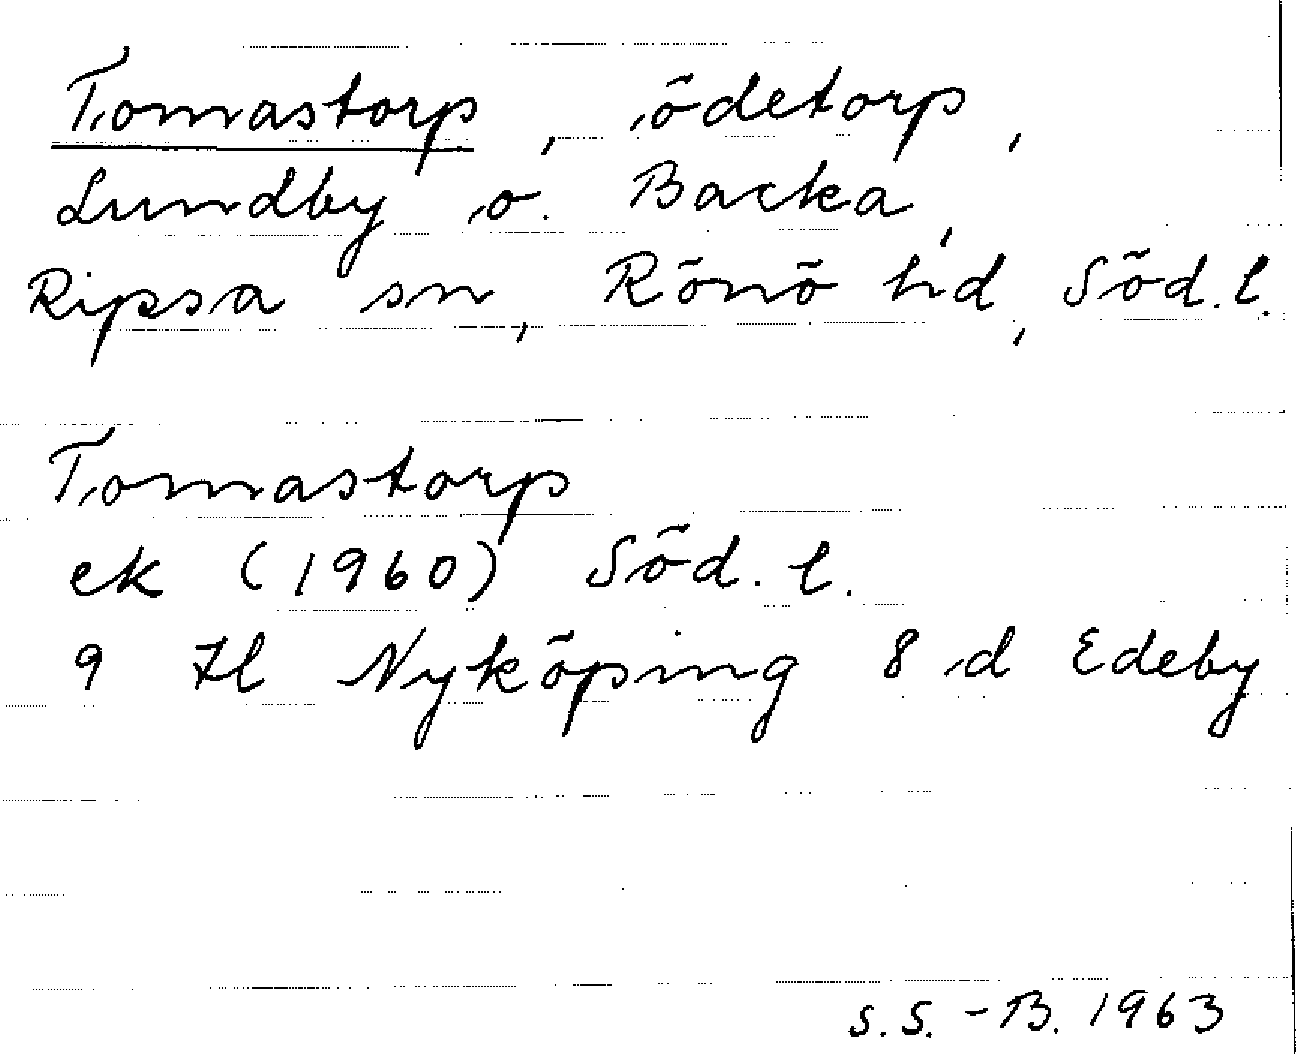 Tomastorp, ödetorp,
Lundby o. Backa,
Ripsa sn, Rönö hd, Söd. l.
Tomastorp
ek (1960) Söd. l.
9 H Nyköping 8 d Edeby
S.S.-B. 1963